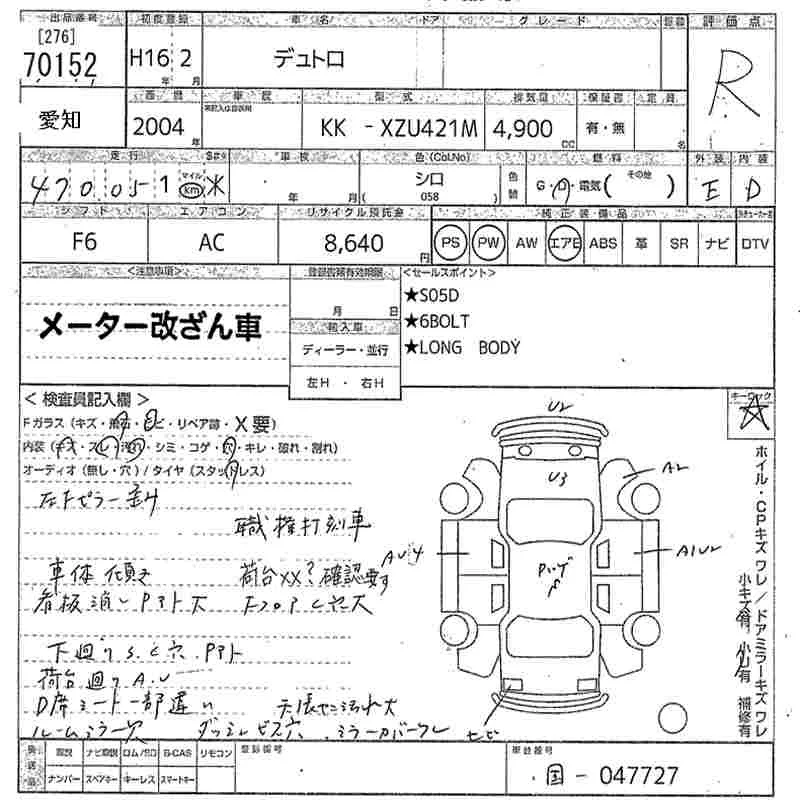 出品番号 初度登録 車名 ドア グレード 評価点
[276]
70152 H16年 2月 デュトロ R
愛知 2004年 型式 KK - XZU421M 排気量 4,900 CC 保証書 有・無 定員 名
走行 車検 色(Col.No) 色替 燃料 外装 内装
470051 マイル km 年 月 シロ ( 058 ) G・・電気( その他 ) E D
シフト エアコン リサイクル預託金 純正装備品
F6 AC 8,640円 PS PW AW エアB ABS 革 SR ナビ DTV
<注意事項> 登録書類有効期限 <セールスポイント>
月 日
★S05D
メーター改ざん車 輸入車 ★6BOLT
ディーラー・並行 ★LONG BODY
左H ・ 右H
<検査員記入欄> キーロック
Fガラス(キズ・飛石・ヒビ・リペア跡・X要)
内装(キズ・スレ・汚れ・シミ・コゲ・穴・キレ・破れ・割れ)
オーディオ(無し・穴)/タイヤ(スタッドレス)
職権打刻車
車体傾き 荷台XX?確認要す
看板消しPアト大
下廻りS.C穴.Pアト
荷台廻りA.U
D席シート一部違い
ルームミラー欠 ダッシュビス穴.ミラーカバーワレ
U2
U3
A2
AU4
A1U2
ホイル・CPキズワレ/ドアミラーキズワレ
小キズ有、小U有 補修有
発送品 取説 ナビ取説 ロム/SD B-CAS リモコン 登録番号 車台番号
ナンバー スペアキー キーレス スマートキー 国 - 047727